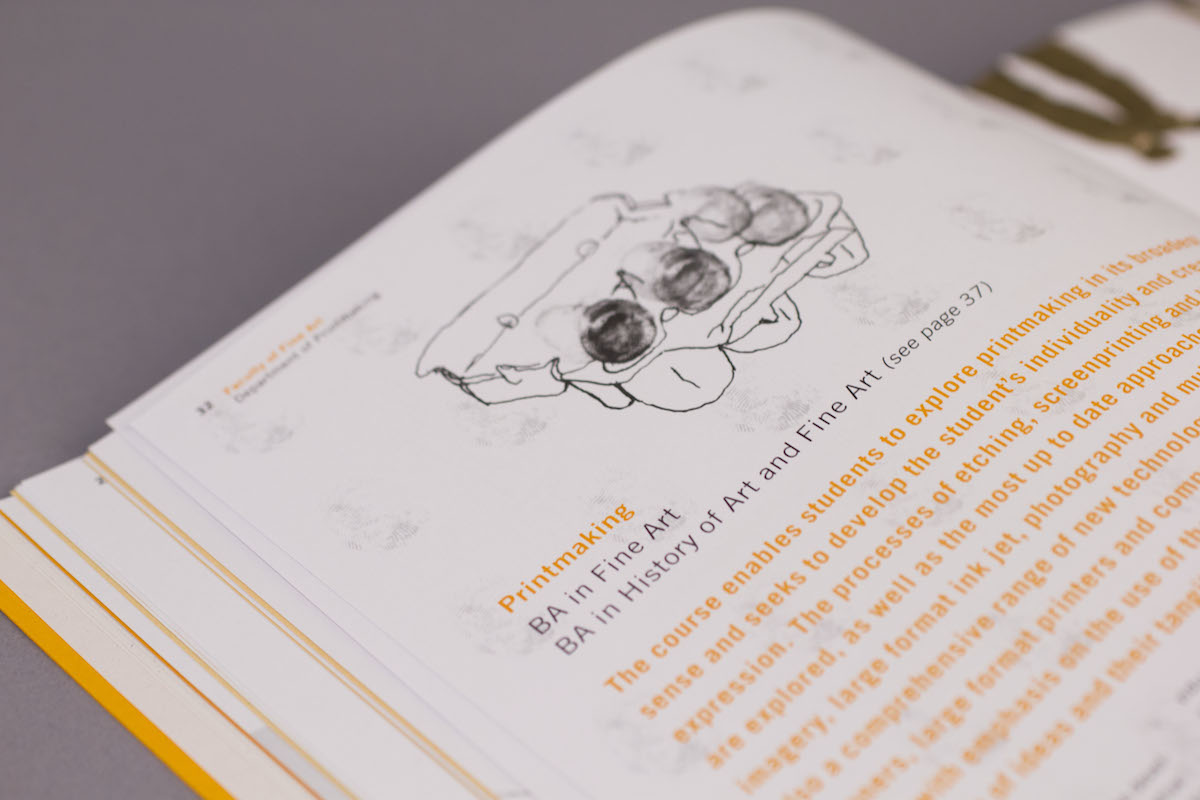 32
Faculty of Fine Art
Department of Printmaking
Printmaking
BA in Fine Art
BA in History of Art and Fine Art (see page 37)
The course enables students to explore printmaking in its broadest
sense and seeks to develop the student's individuality and
expression. The processes of etching, screenprinting and
are explored, as well as the most up to date
imagery, large format ink jet, photography and
a comprehensive range of new
large format printers and
with emphasis on the use of
of ideas and their